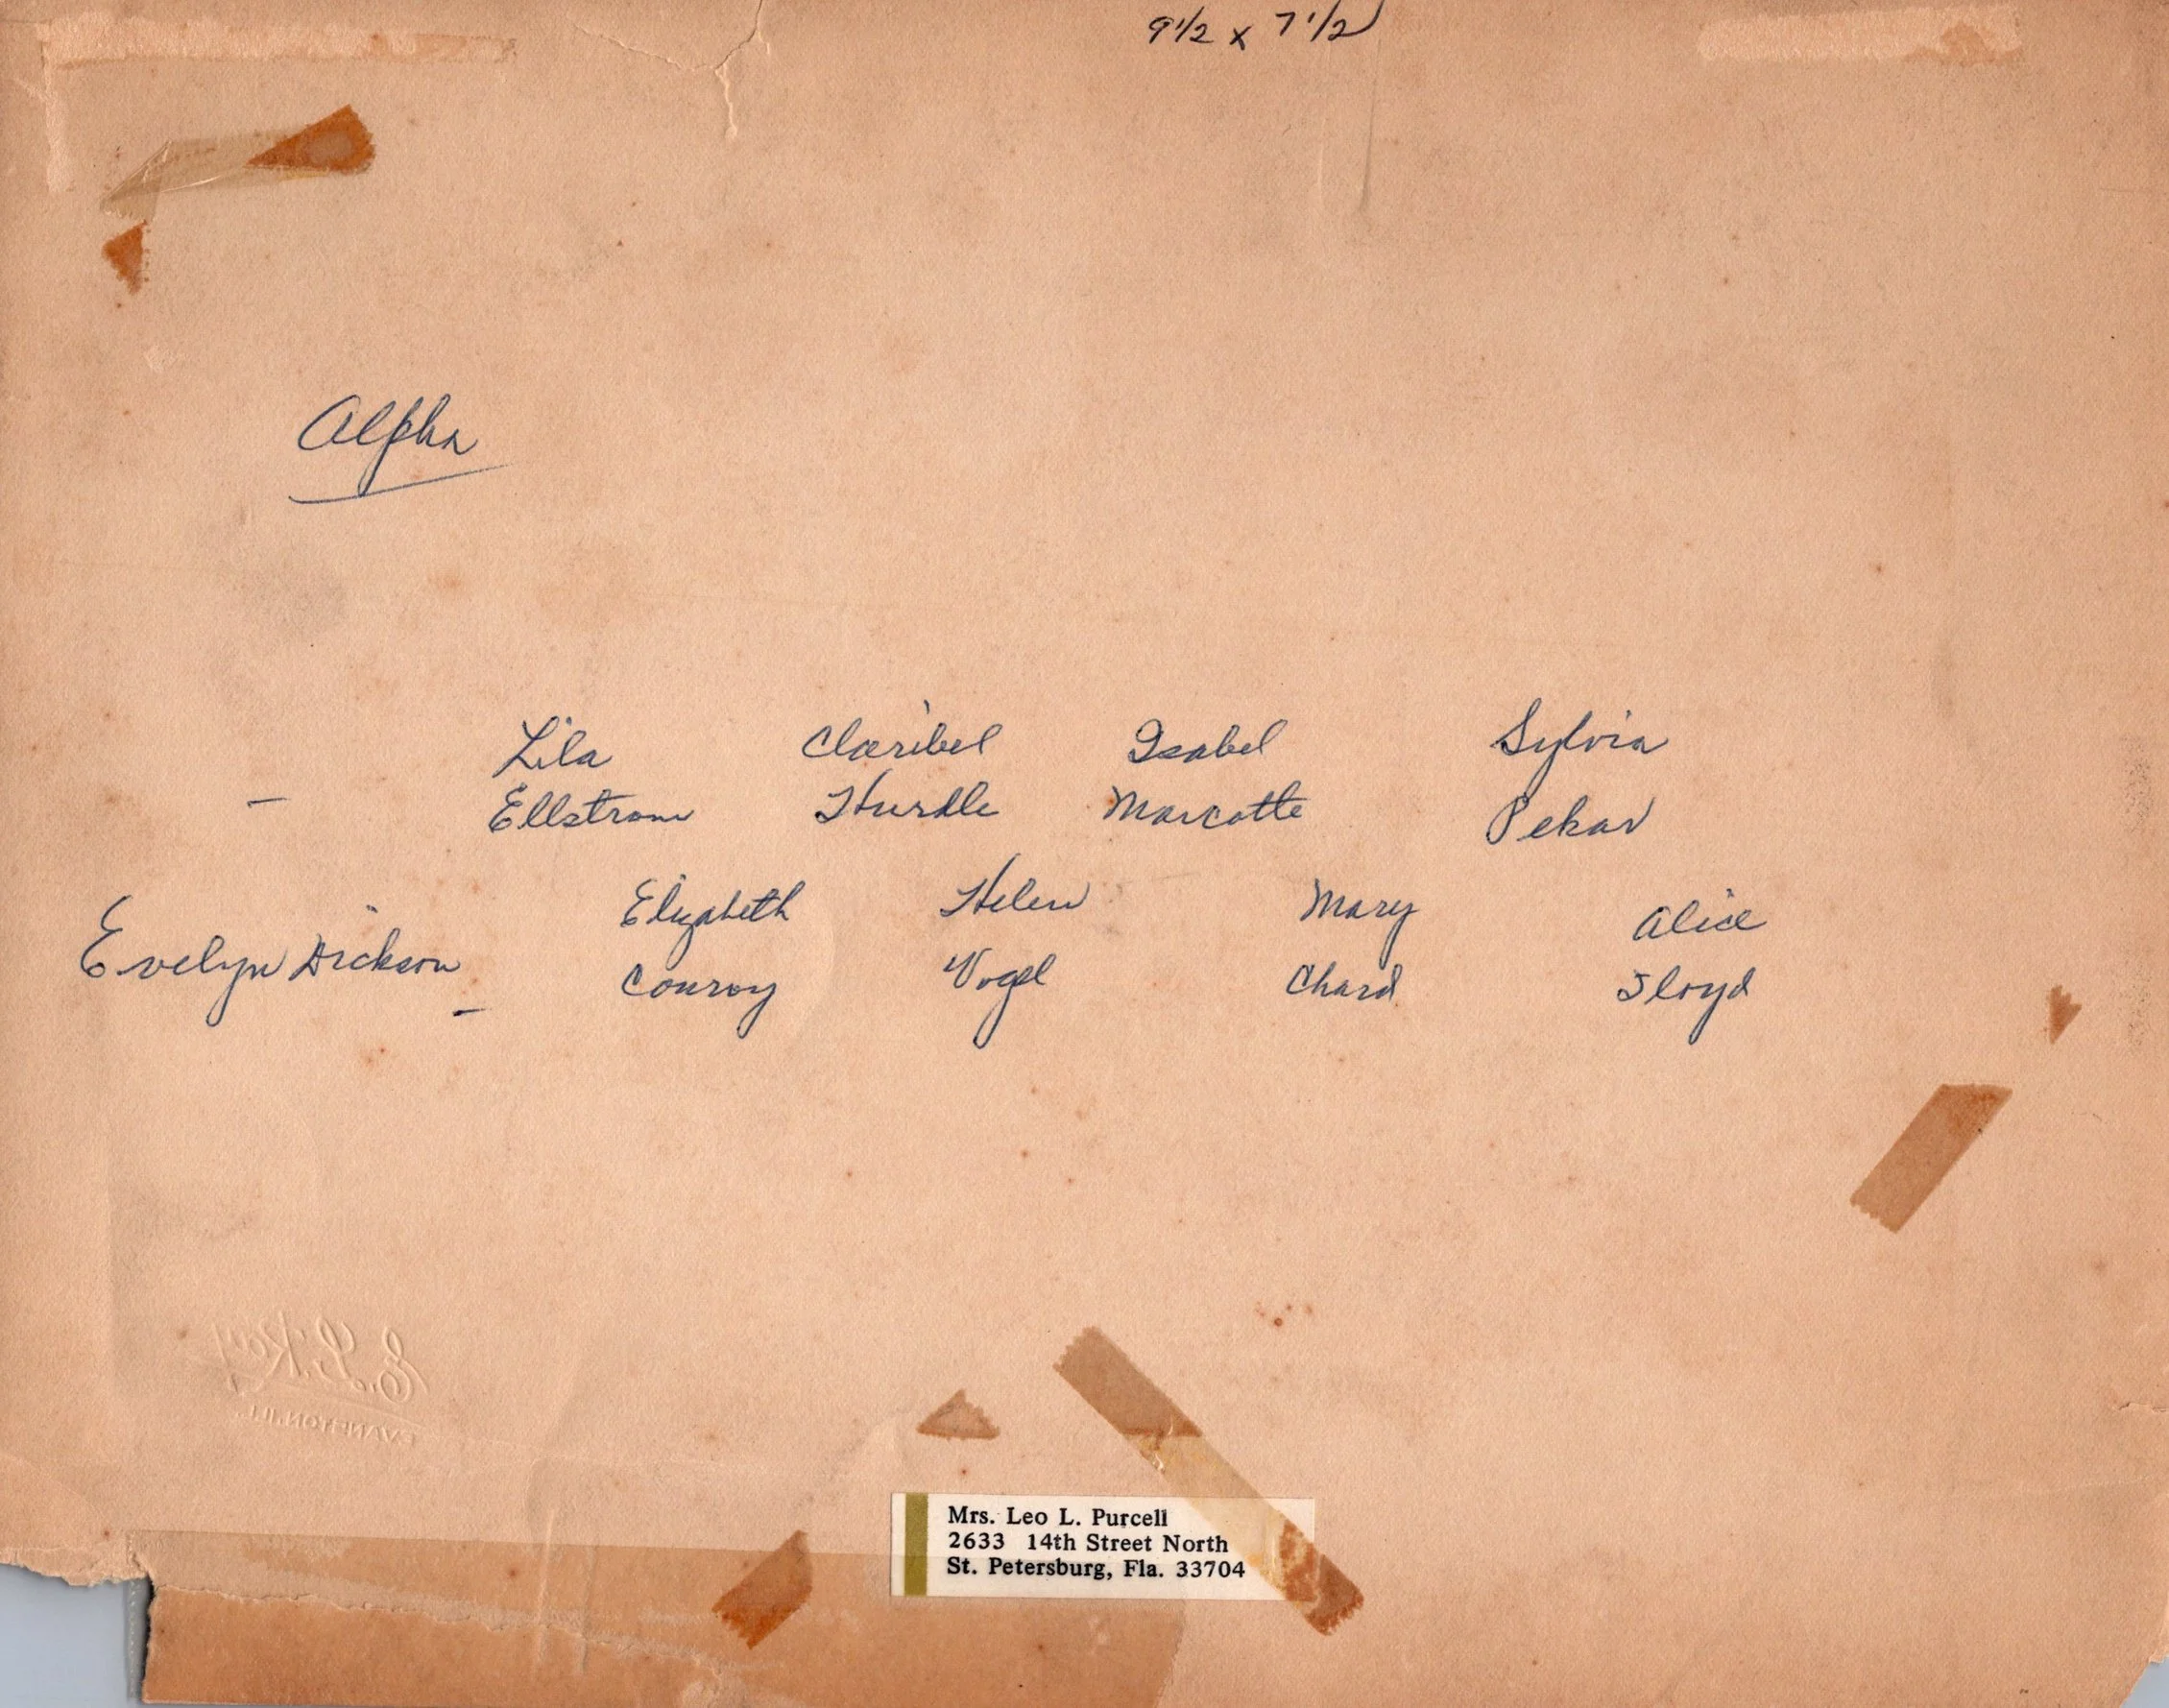 9 1/2 x 7 1/2
Alpha
Lila Claribel Isabel Sylvia
– Ellstrom Hurdle Marcotte Pekar
Elizabeth Helen Mary Alice
Evelyn Dickson – Conroy Vogel Chard Floyd
EVANSTON, ILL.
Mrs. Leo L. Purcell
2633 14th Street North
St. Petersburg, Fla. 33704